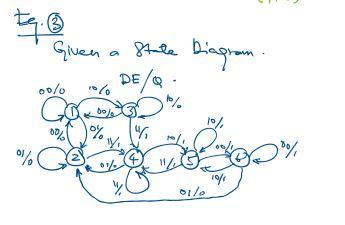 Eg. ③
Given a State Diagram.
DE/Q.
00/0 10/0 10/0
1 00/0 3
00/0 01/0 11/1 11/1 10/1 10/1 00/1 00/1
01/0 2 01/0 4 11/1 5 10/1 6
11/1 01/0